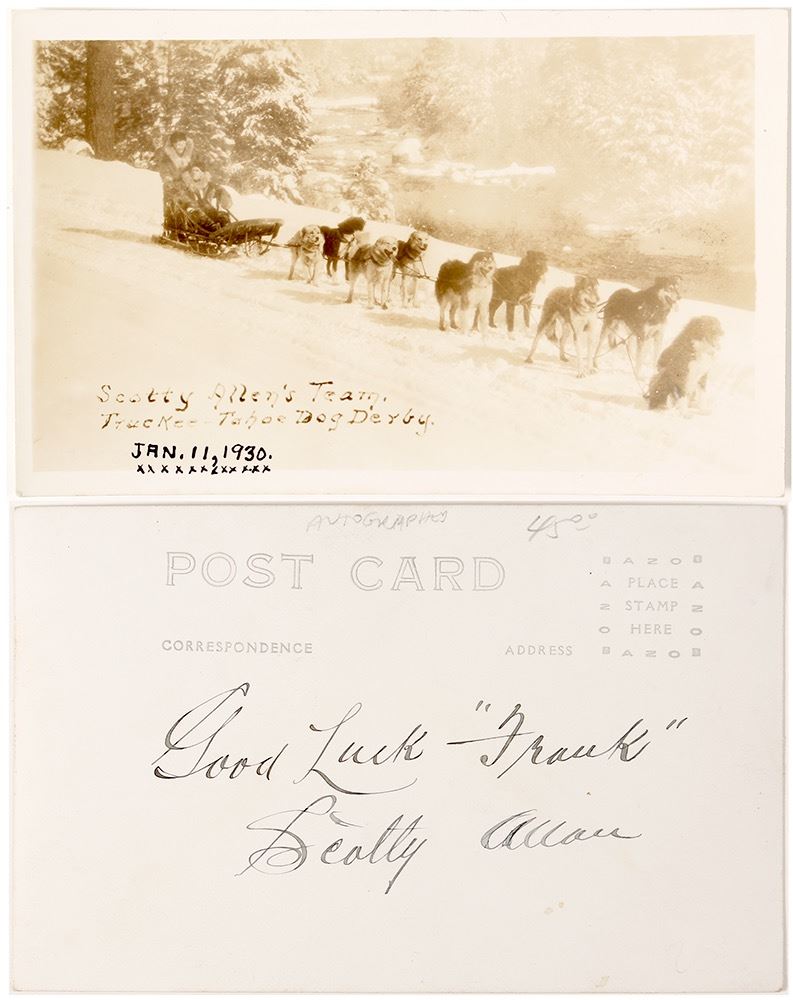 Scotty Allen's Team.
Truckee-Tahoe Dog Derby.
JAN. 11, 1930.
xxxxxxxxxxx
AUTOGRAPHED
45⁰⁰
POST CARD
AZO
PLACE
STAMP
HERE
AZO
CORRESPONDENCE
ADDRESS
Good Luck - "Frank"
Scotty Allan